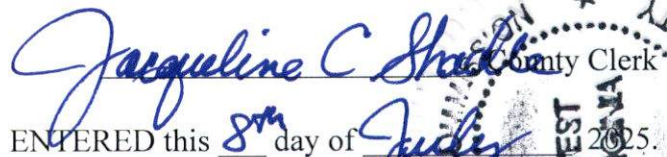 Jacqueline C County Clerk
ENTERED this 8th day of July 2025.
EST